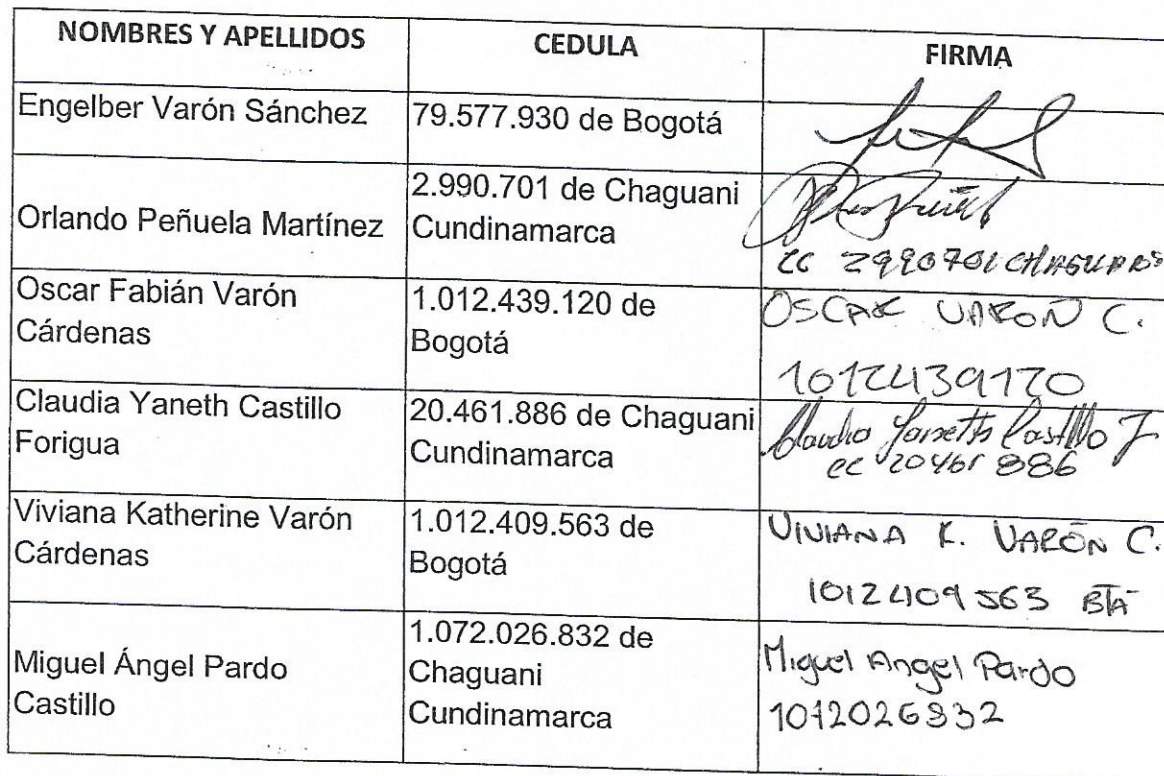 NOMBRES Y APELLIDOS CEDULA FIRMA
Engelber Varón Sánchez 79.577.930 de Bogotá
Orlando Peñuela Martínez 2.990.701 de Chaguani
Cundinamarca
CC 2990701 CHAGUANI
Oscar Fabián Varón
Cárdenas
1.012.439.120 de
Bogotá
OSCAR VARON C.
1012439120
Claudia Yaneth Castillo
Forigua
20.461.886 de Chaguani
Cundinamarca
Claudia Yaneth Castillo F
CC 20461886
Viviana Katherine Varón
Cárdenas
1.012.409.563 de
Bogotá
VIVIANA K. VARÓN C.
1012409563 BTA
Miguel Ángel Pardo
Castillo
1.072.026.832 de
Chaguani
Cundinamarca
Miguel Angel Pardo
1072026832